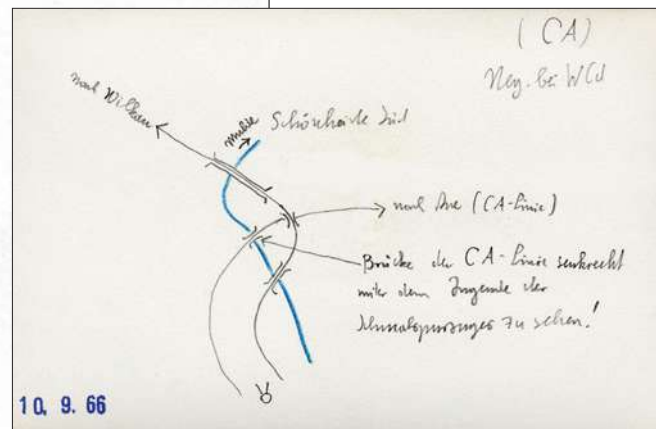 (CA)
Neg. bei WCd
nach Wilkau
Mulde
Schönheide Süd
nach Aue (CA-Linie)
Brücke der CA-Linie senkrecht
dem Zugende der
Schmalspurzuges zu sehen!
10. 9. 66